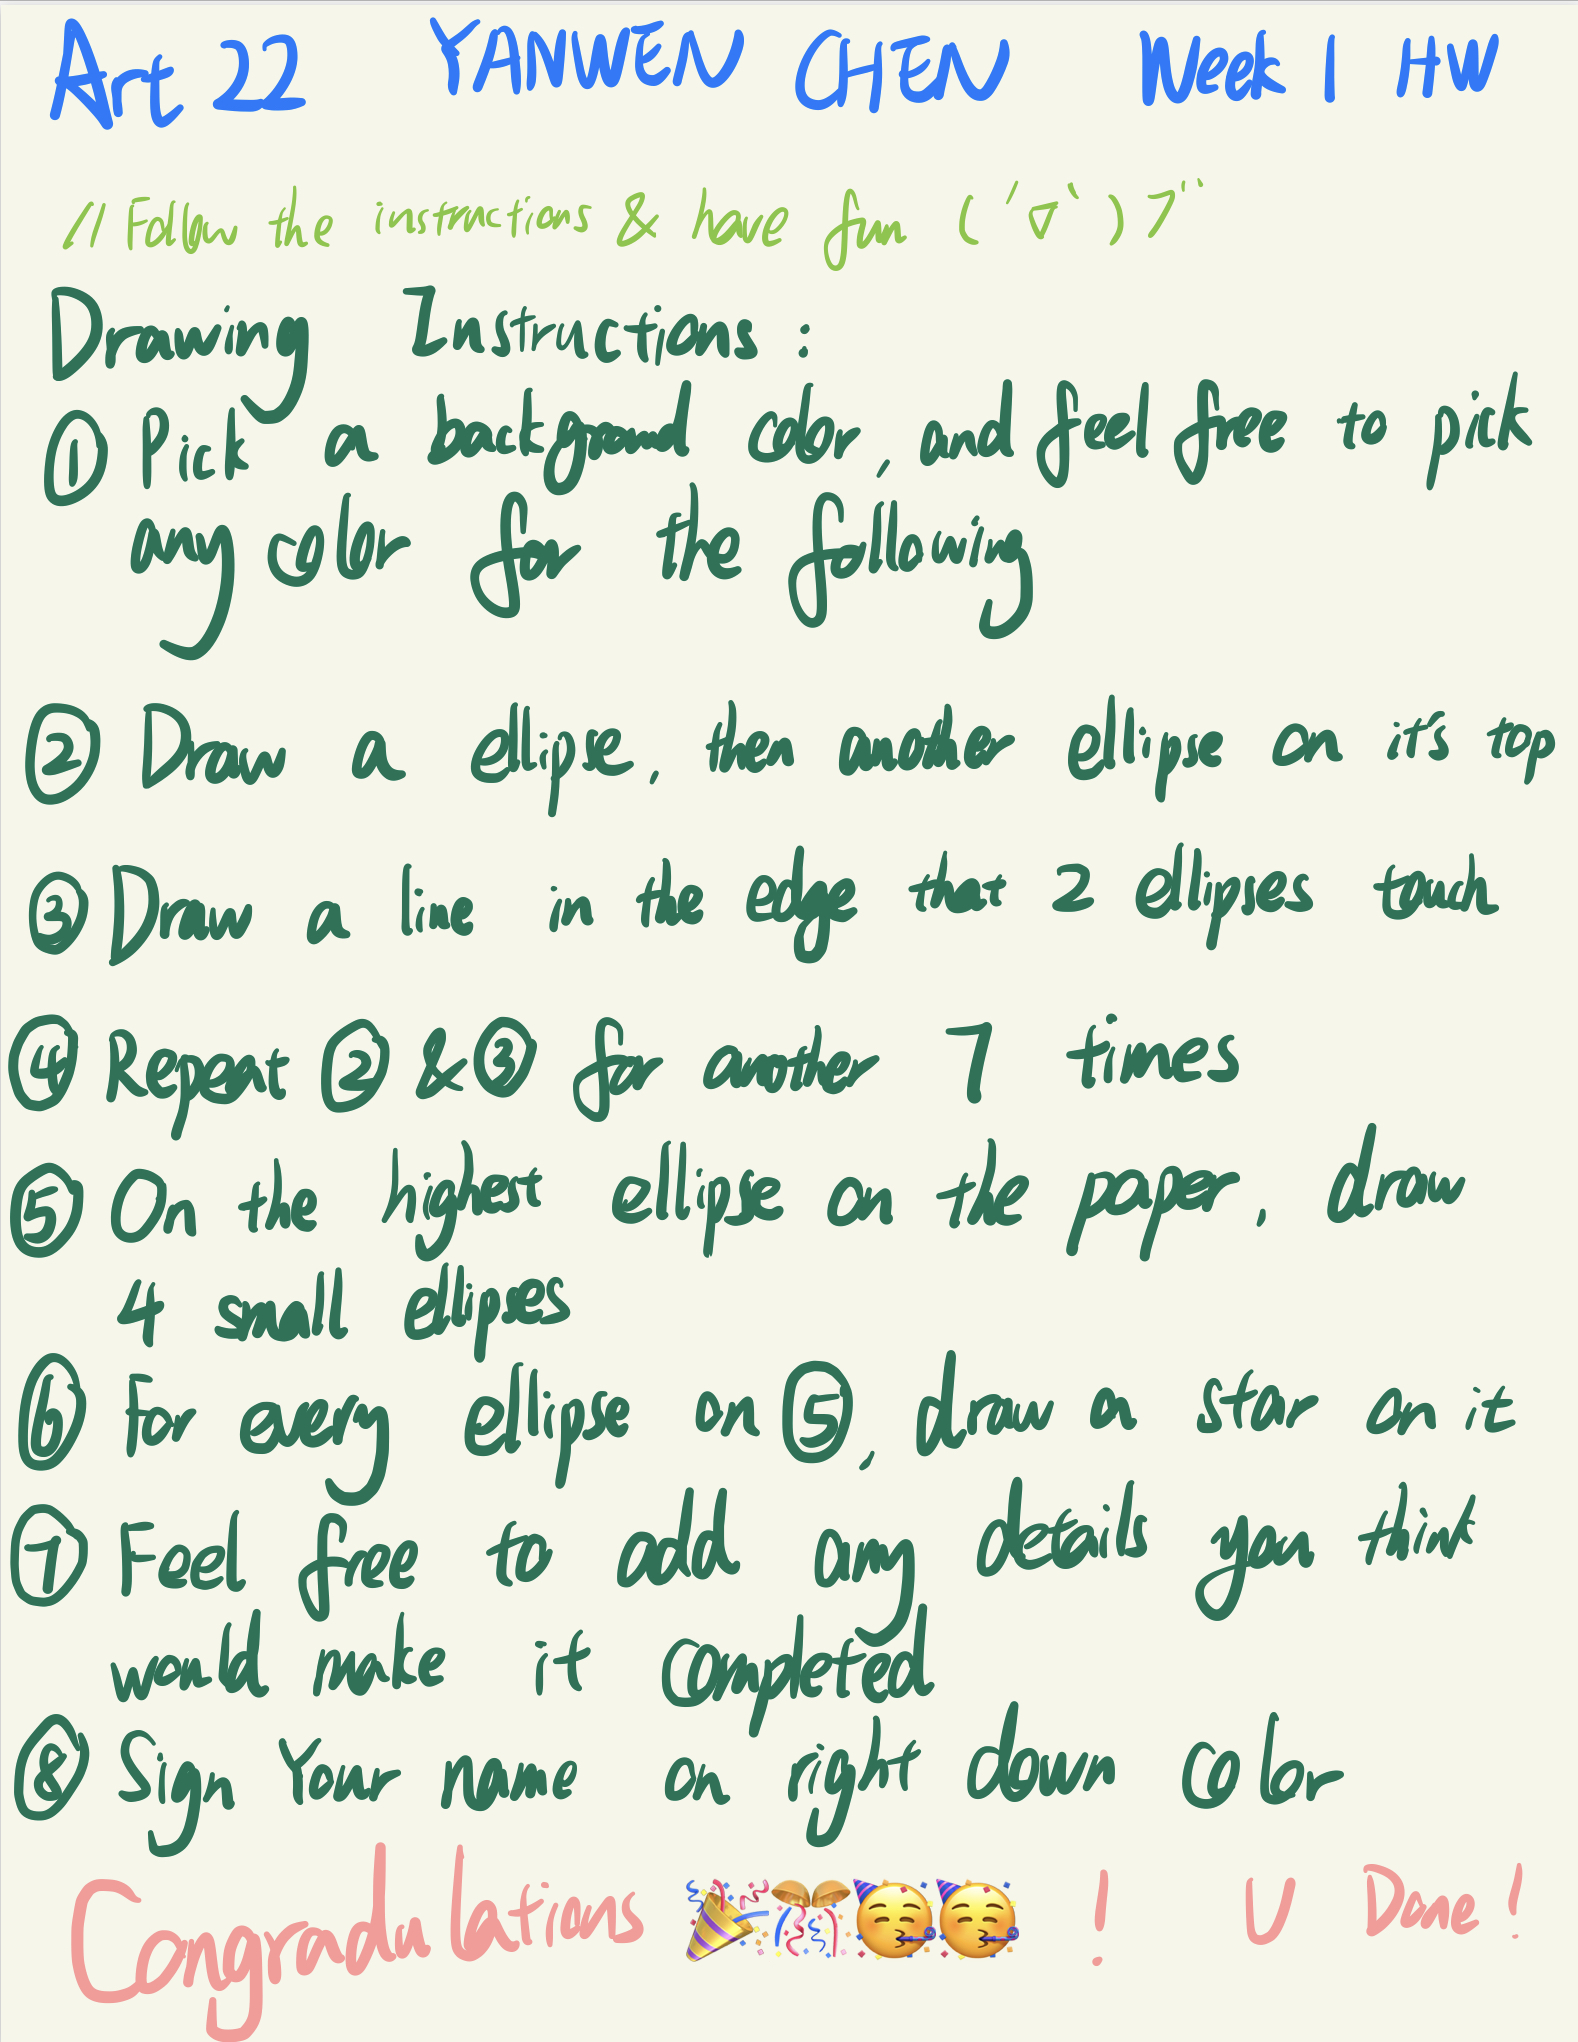 Art 22 YANWEN CHEN Week 1 HW
// Follow the instructions & have fun ( ´∇` ) 7¨
Drawing Instructions :
① Pick a background color, and feel free to pick
any color for the following
② Draw a ellipse, then another ellipse on it's top
③ Draw a line in the edge that 2 ellipses touch
④ Repeat ② & ③ for another 7 times
⑤ On the highest ellipse on the paper, draw
4 small ellipses
⑥ For every ellipse on ⑤, draw a star on it
⑦ Feel free to add any details you think
would make it completed
⑧ Sign Your name on right down color
Congradulations 🎉🎊🥳🥳 ! U Done !